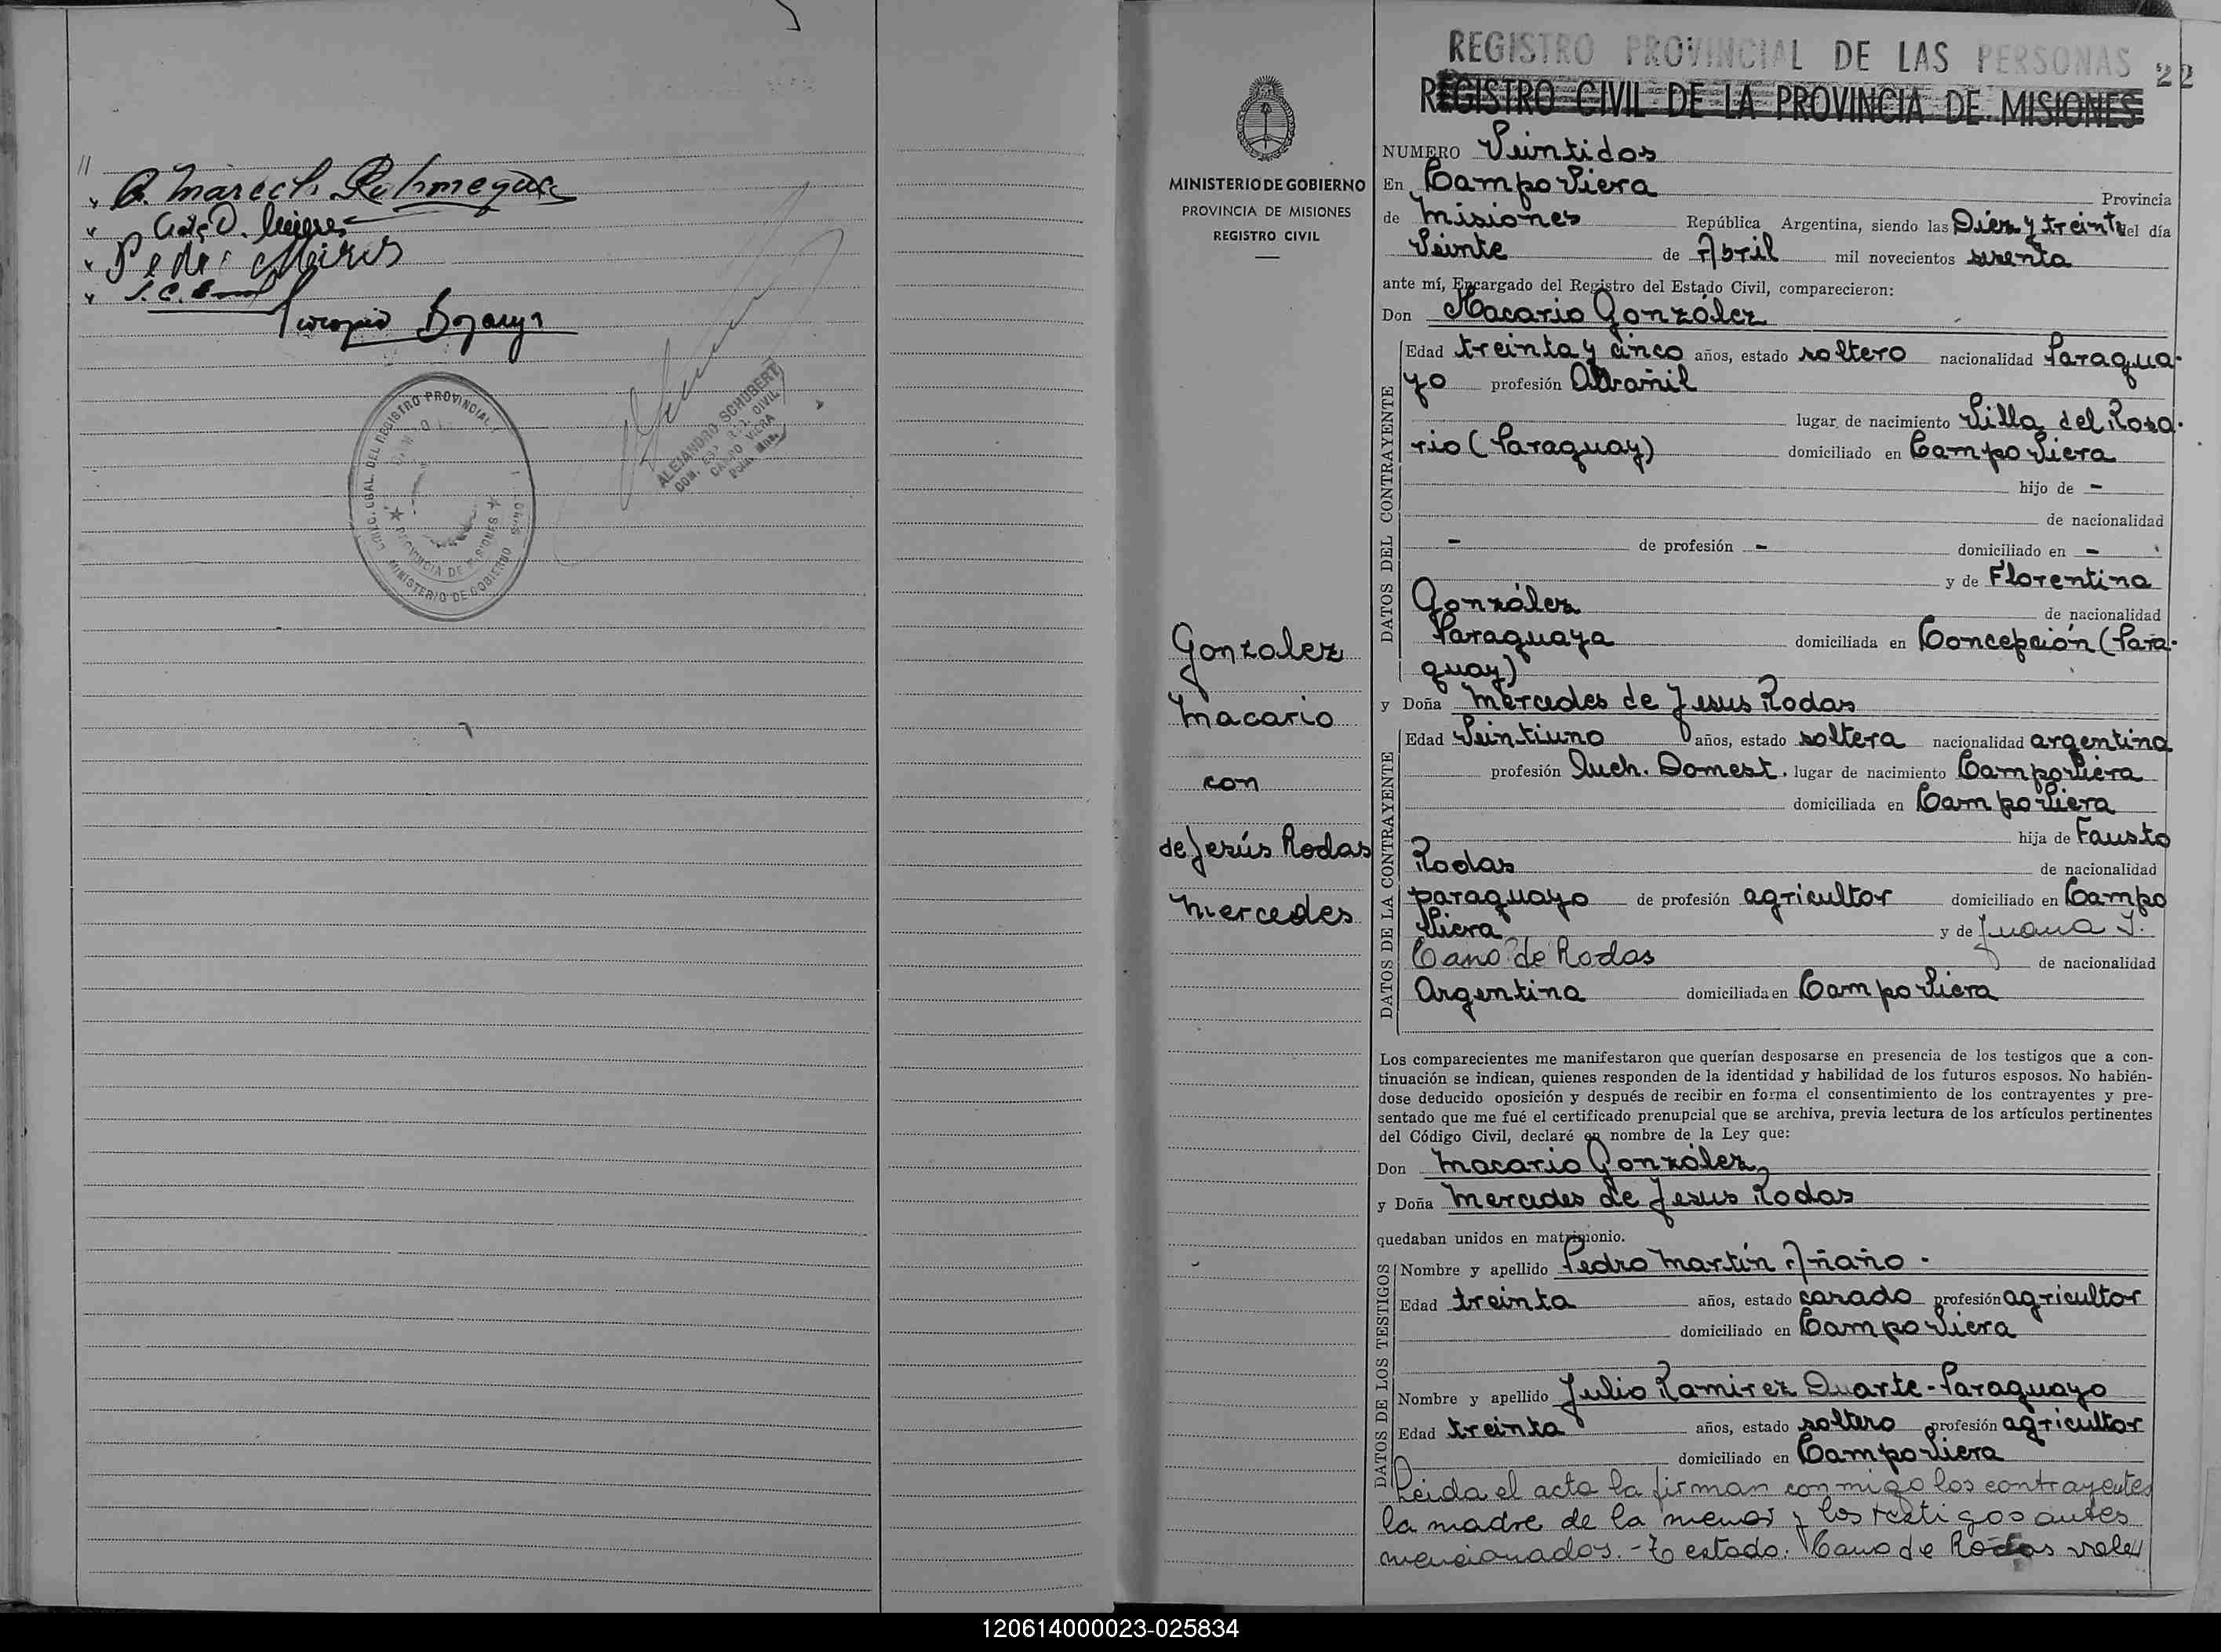 Pedro
REGISTRO PROVINCIAL
MINISTERIO DE GOBIERNO
PROVINCIA DE MISIONES
ALEJANDRO SCHUBERT
CAMPO VIERA
REGISTRO PROVINCIAL DE LAS PERSONAS
22
REGISTRO CIVIL DE LA PROVINCIA DE MISIONES
MINISTERIO DE GOBIERNO
PROVINCIA DE MISIONES
REGISTRO CIVIL
Gonzalez
Macario
con
de Jesús Rodas
Mercedes
NUMERO Veintidos
En Campo Viera Provincia
de Misiones República Argentina, siendo las Diez y treinta del día
Veinte de Abril mil novecientos sesenta
ante mí, Encargado del Registro del Estado Civil, comparecieron:
Don Macario González
DATOS DEL CONTRAYENTE
Edad treinta y cinco años, estado soltero nacionalidad Paragua-
yo profesión Albañil
lugar de nacimiento Villa del Rosa-
rio (Paraguay) domiciliado en Campo Viera
hijo de -
de nacionalidad
- de profesión - domiciliado en -
y de Florentina
González de nacionalidad
Paraguaya domiciliada en Concepción (Para-
guay)
y Doña Mercedes de Jesus Rodas
DATOS DE LA CONTRAYENTE
Edad Veintiuno años, estado soltera nacionalidad argentina
profesión Queh. Domest. lugar de nacimiento Campo Viera
domiciliada en Campo Viera
hija de Fausto
Rodas de nacionalidad
paraguayo de profesión agricultor domiciliado en Campo
Viera y de Juana I.
Cano de Rodas de nacionalidad
Argentina domiciliada en Campo Viera
Los comparecientes me manifestaron que querían desposarse en presencia de los testigos que a con-
tinuación se indican, quienes responden de la identidad y habilidad de los futuros esposos. No habién-
dose deducido oposición y después de recibir en forma el consentimiento de los contrayentes y pre-
sentado que me fué el certificado prenupcial que se archiva, previa lectura de los artículos pertinentes
del Código Civil, declaré en nombre de la Ley que:
Don Macario González
y Doña Mercedes de Jesus Rodas
quedaban unidos en matrimonio.
DATOS DE LOS TESTIGOS
Nombre y apellido Pedro Martín Añaño -
Edad treinta años, estado casado profesión agricultor
domiciliado en Campo Viera
Nombre y apellido Julio Ramirez Duarte - Paraguayo
Edad treinta años, estado soltero profesión agricultor
domiciliado en Campo Viera
Leida el acta la firman conmigo los contrayentes
la madre de la menor y los testigos antes
mencionados. - estado: Cano de Rodas vale
120614000023-025834